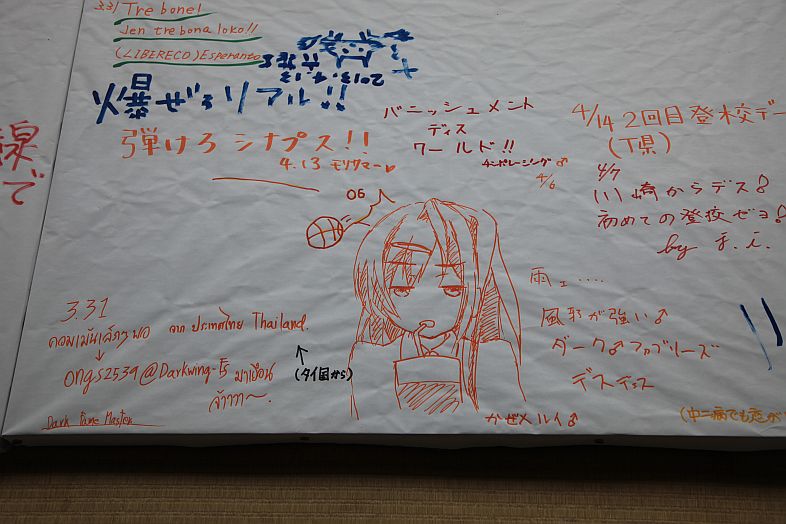 3.31 Tre bone!
Jen tre bona loko!!
(LIBERECO) Esperanto
2013.4.13
爆ぜろリアル!!
弾けろ シナプス!!
4.13 モリサマー♥
バニッシュメント
ディス
ワールド!!
4/6
4/14 2回目登校デー
(T県)
4/7
川崎からデス!
初めての登校ゼヨ!
by f.i.
線で
06
雨ェ....
風邪が強い♂
ダーク♂ファブリーズ
デスデェス
3.31
จาก ประเทศไทย Thailand.
ongs2539@Darkwing-โร่ มาเยือน
จ้าาาา~.
(タイ国から)
Dark Flame Master
かぜメルイ♂
(中二病でも恋が